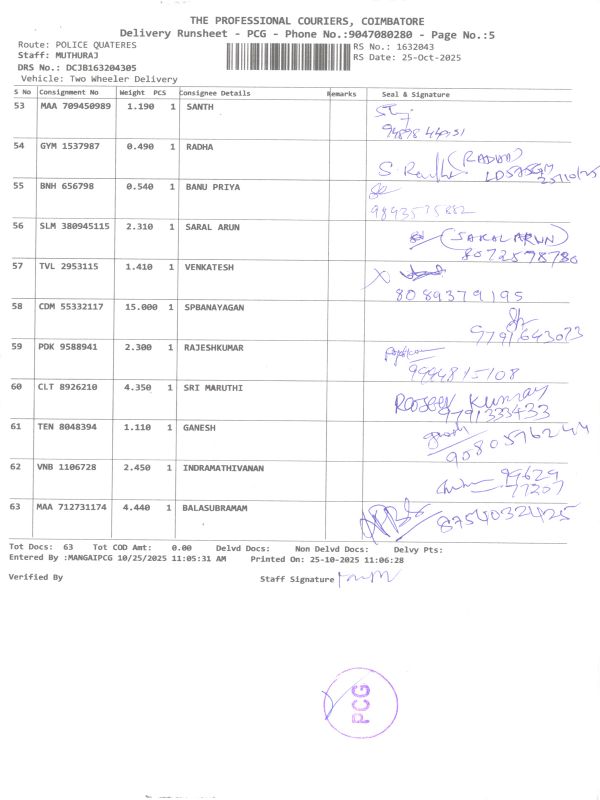 THE PROFESSIONAL COURIERS, COIMBATORE
Delivery Runsheet - PCG - Phone No.:9047080280 - Page No.:5
Route: POLICE QUATERES RS No.: 1632043
Staff: MUTHURAJ RS Date: 25-Oct-2025
DRS No.: DCJB163204305
Vehicle: Two Wheeler Delivery
S No Consignment No Weight PCS Consignee Details Remarks Seal & Signature
53 MAA 709450989 1.190 1 SANTH
54 GYM 1537987 0.490 1 RADHA
(RADHA)
S. Radha
25/10/25
55 BNH 656798 0.540 1 BANU PRIYA
56 SLM 380945115 2.310 1 SARAL ARUN
(SARAL ARUN)
8072578780
57 TVL 2953115 1.410 1 VENKATESH
8089379195
58 CDM 55332117 15.000 1 SPBANAYAGAN
9791643023
59 PDK 9588941 2.300 1 RAJESHKUMAR
9994815108
60 CLT 8926210 4.350 1 SRI MARUTHI
9791333433
61 TEN 8048394 1.110 1 GANESH
9080576244
62 VNB 1106728 2.450 1 INDRAMATHIVANAN
99629
77207
63 MAA 712731174 4.440 1 BALASUBRAMAM
8754032425
Tot Docs: 63 Tot COD Amt: 0.00 Delvd Docs: Non Delvd Docs: Delvy Pts:
Entered By :MANGAIPCG 10/25/2025 11:05:31 AM Printed On: 25-10-2025 11:06:28
Verified By Staff Signature
PCG